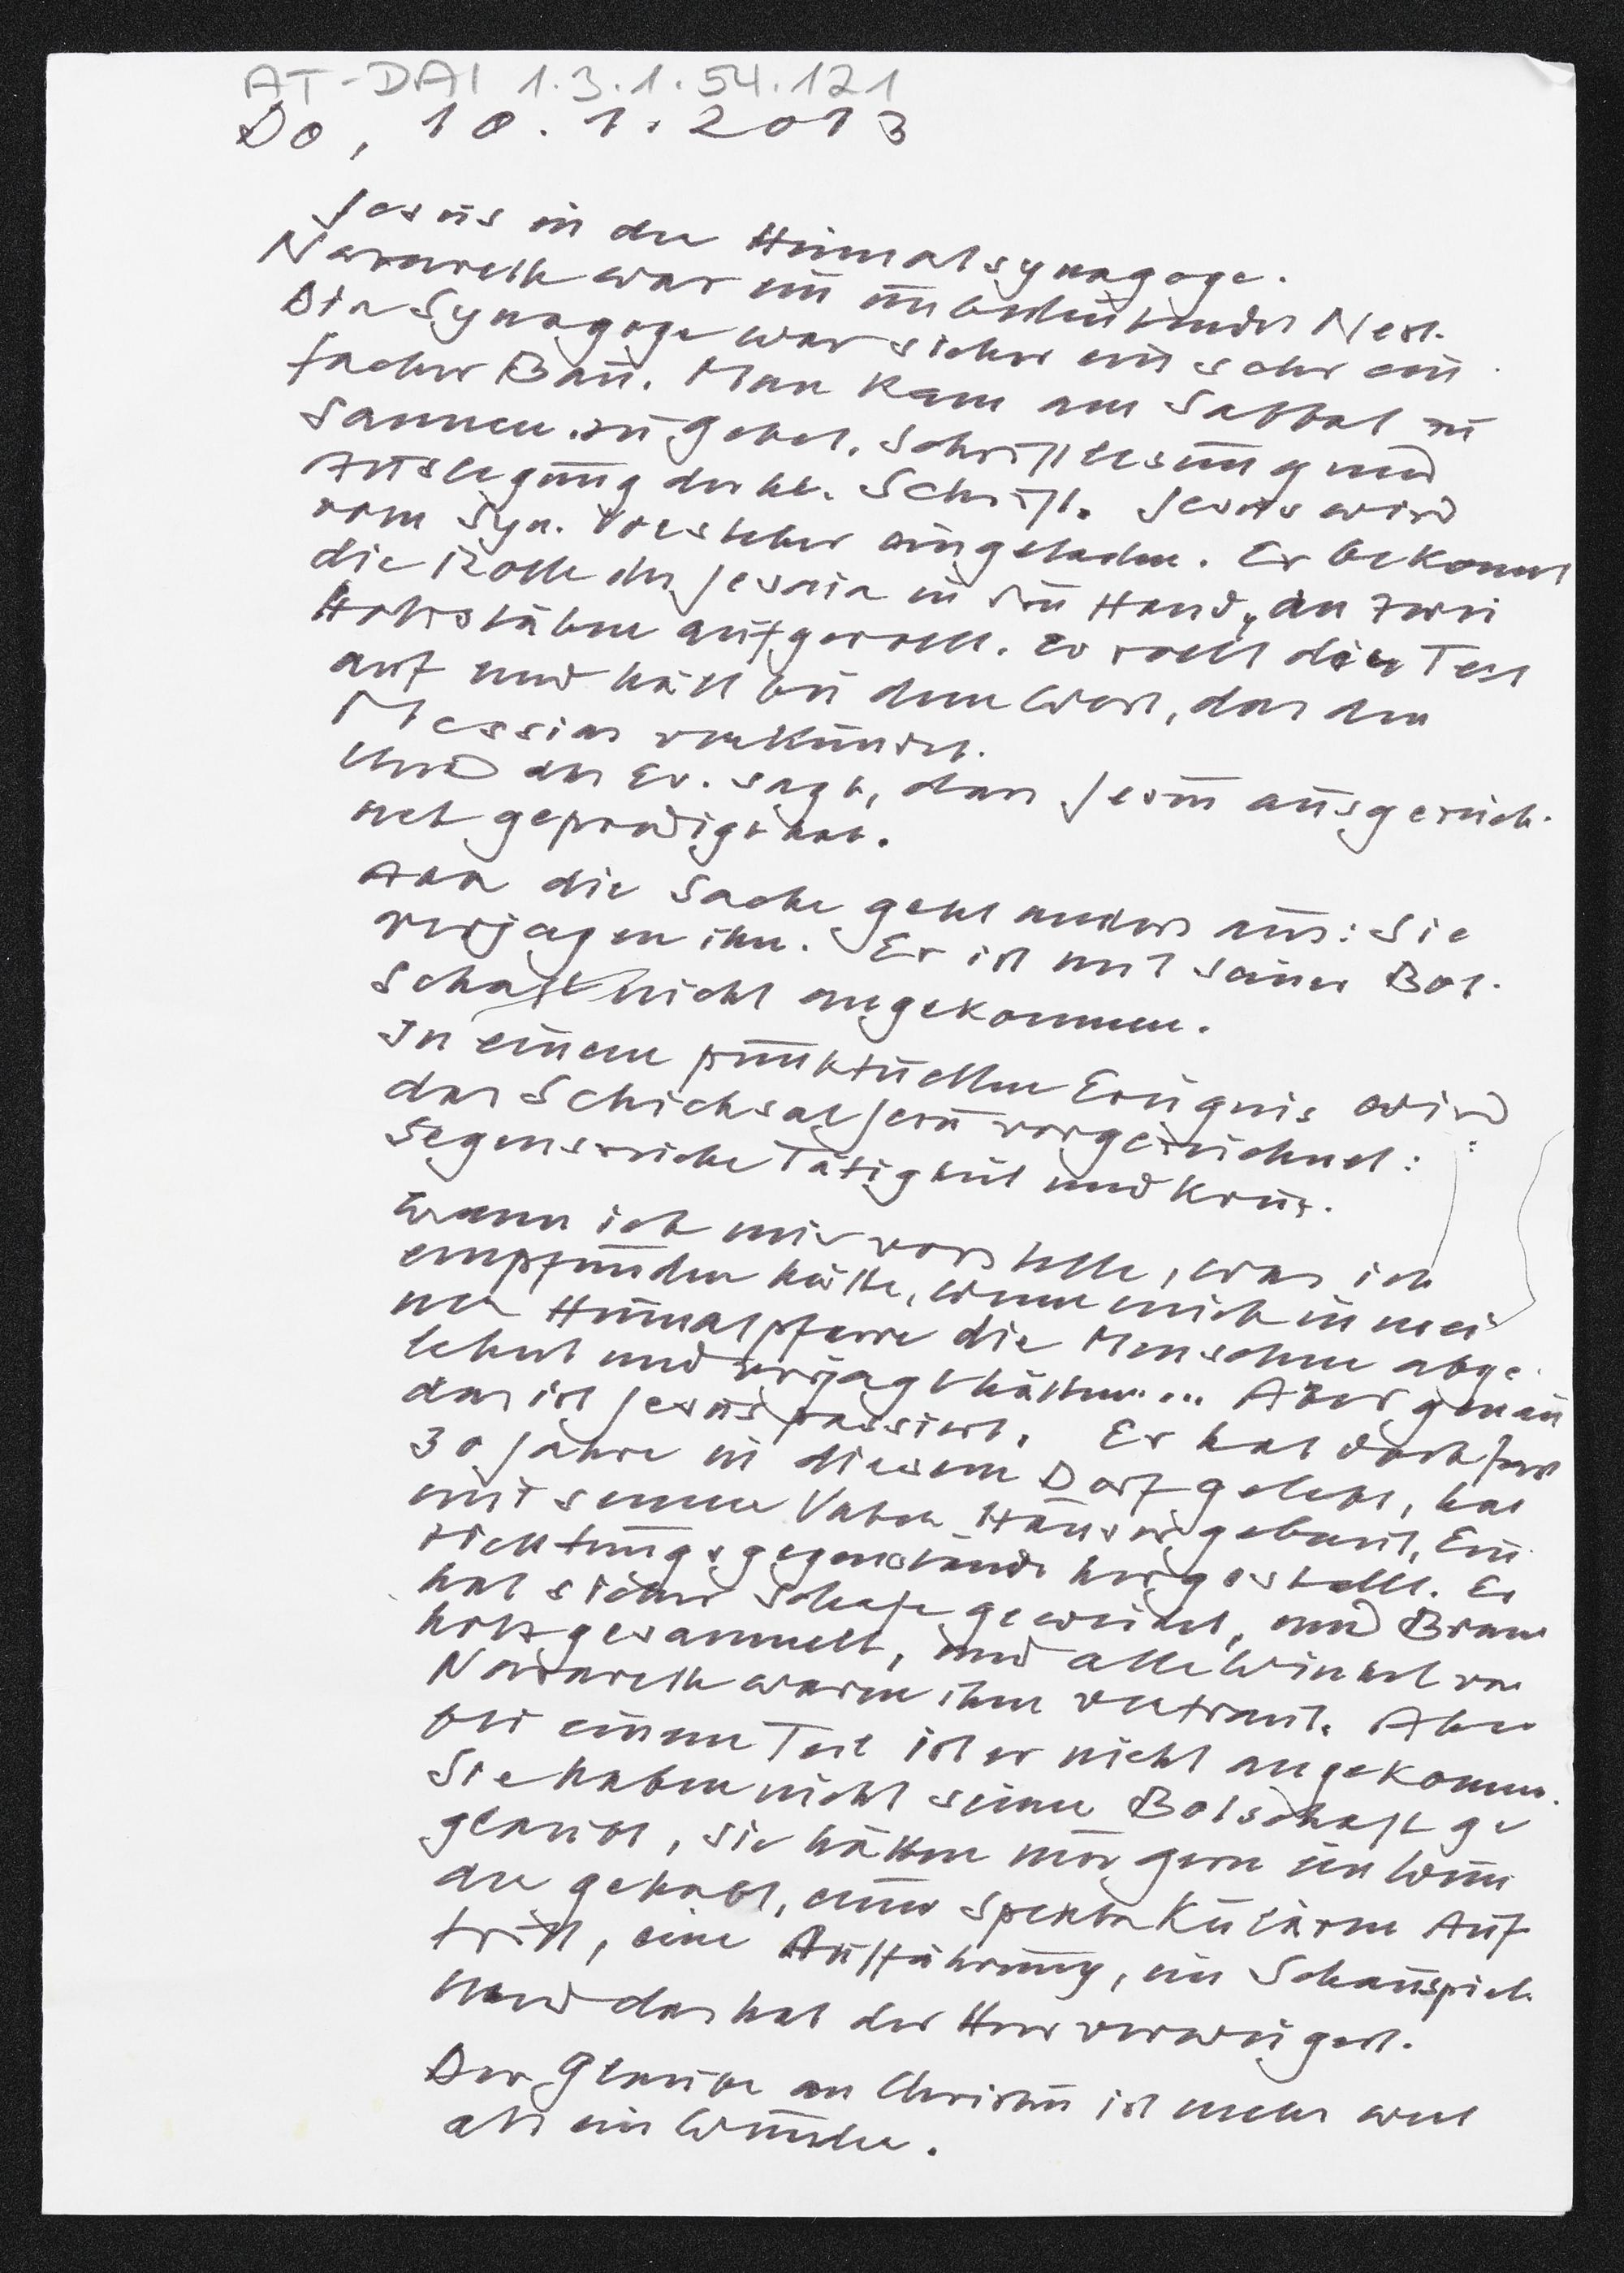 AT-DAI 1.3.1.54.121
Do, 10.1.2013
Jesus in der Heimatsynagoge.
Nazareth war ein unbedeutendes Nest.
Die Synagoge war sicher ein sehr ein
facher Bau. Man kam am Sabbat zu
sammen zu Gebet, Schriftlesung und
Auslegung der hl. Schrift. Jesus wird
vom Syn. Vorsteher eingeladen. Er bekommt
die Rolle des Jesaia in die Hand, an zwei
Holzstäben aufgerollt. Er rollt den Text
auf und hält bei dem Wort, das den
Messias verkündet.
Und das Ev. sagt, dass Jesus ausgezeich-
net gepredigt hat.
Aber die Sache geht anders aus: Sie
verjagen ihn. Er ist mit seiner Bot-
schaft nicht angekommen.
In einem punktuellen Ereignis wird
das Schicksal Jesu vorgezeichnet:
Segensreiche Tätigkeit und Kreuz.
Wenn ich mir vorstelle, was ich
empfunden hätte, wenn mich in mei
ner Heimatpfarre die Menschen abge-
lehnt und verjagt hätten... Aber genau
das ist Jesus passiert. Er hat doch fast
30 Jahre in diesem Dorf gelebt, hat
mit seinem Vater Häuser gebaut, Ein
richtungsgegenstände hergestellt. Er
hat sicher Schafe geweidet, und Brenn
holz gesammelt, und alle Winkel von
Nazareth waren ihm vertraut. Aber
bei einem Teil ist er nicht angekommen.
Sie haben nicht seiner Botschaft ge
glaubt, sie hätten nur gern ein Wun
der gehabt, einen spektakulären Auf
tritt, eine Aufführung, ein Schauspiel.
Und das hat der Herr verweigert.
Der Glaube an Christus ist mehr wert
als ein Wunder.